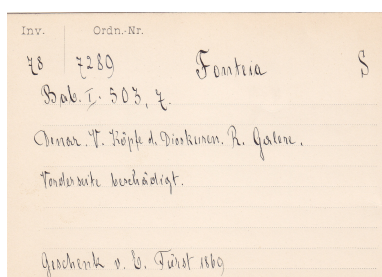 Inv. Ordn.-Nr.
78 7289 Fonteia S
Bab. I. 503, 7.
Denar. V. Köpfe d. Dioskuren. R. Galere.
Vorderseite beschädigt.
Geschenk v. E. Fürst 1869